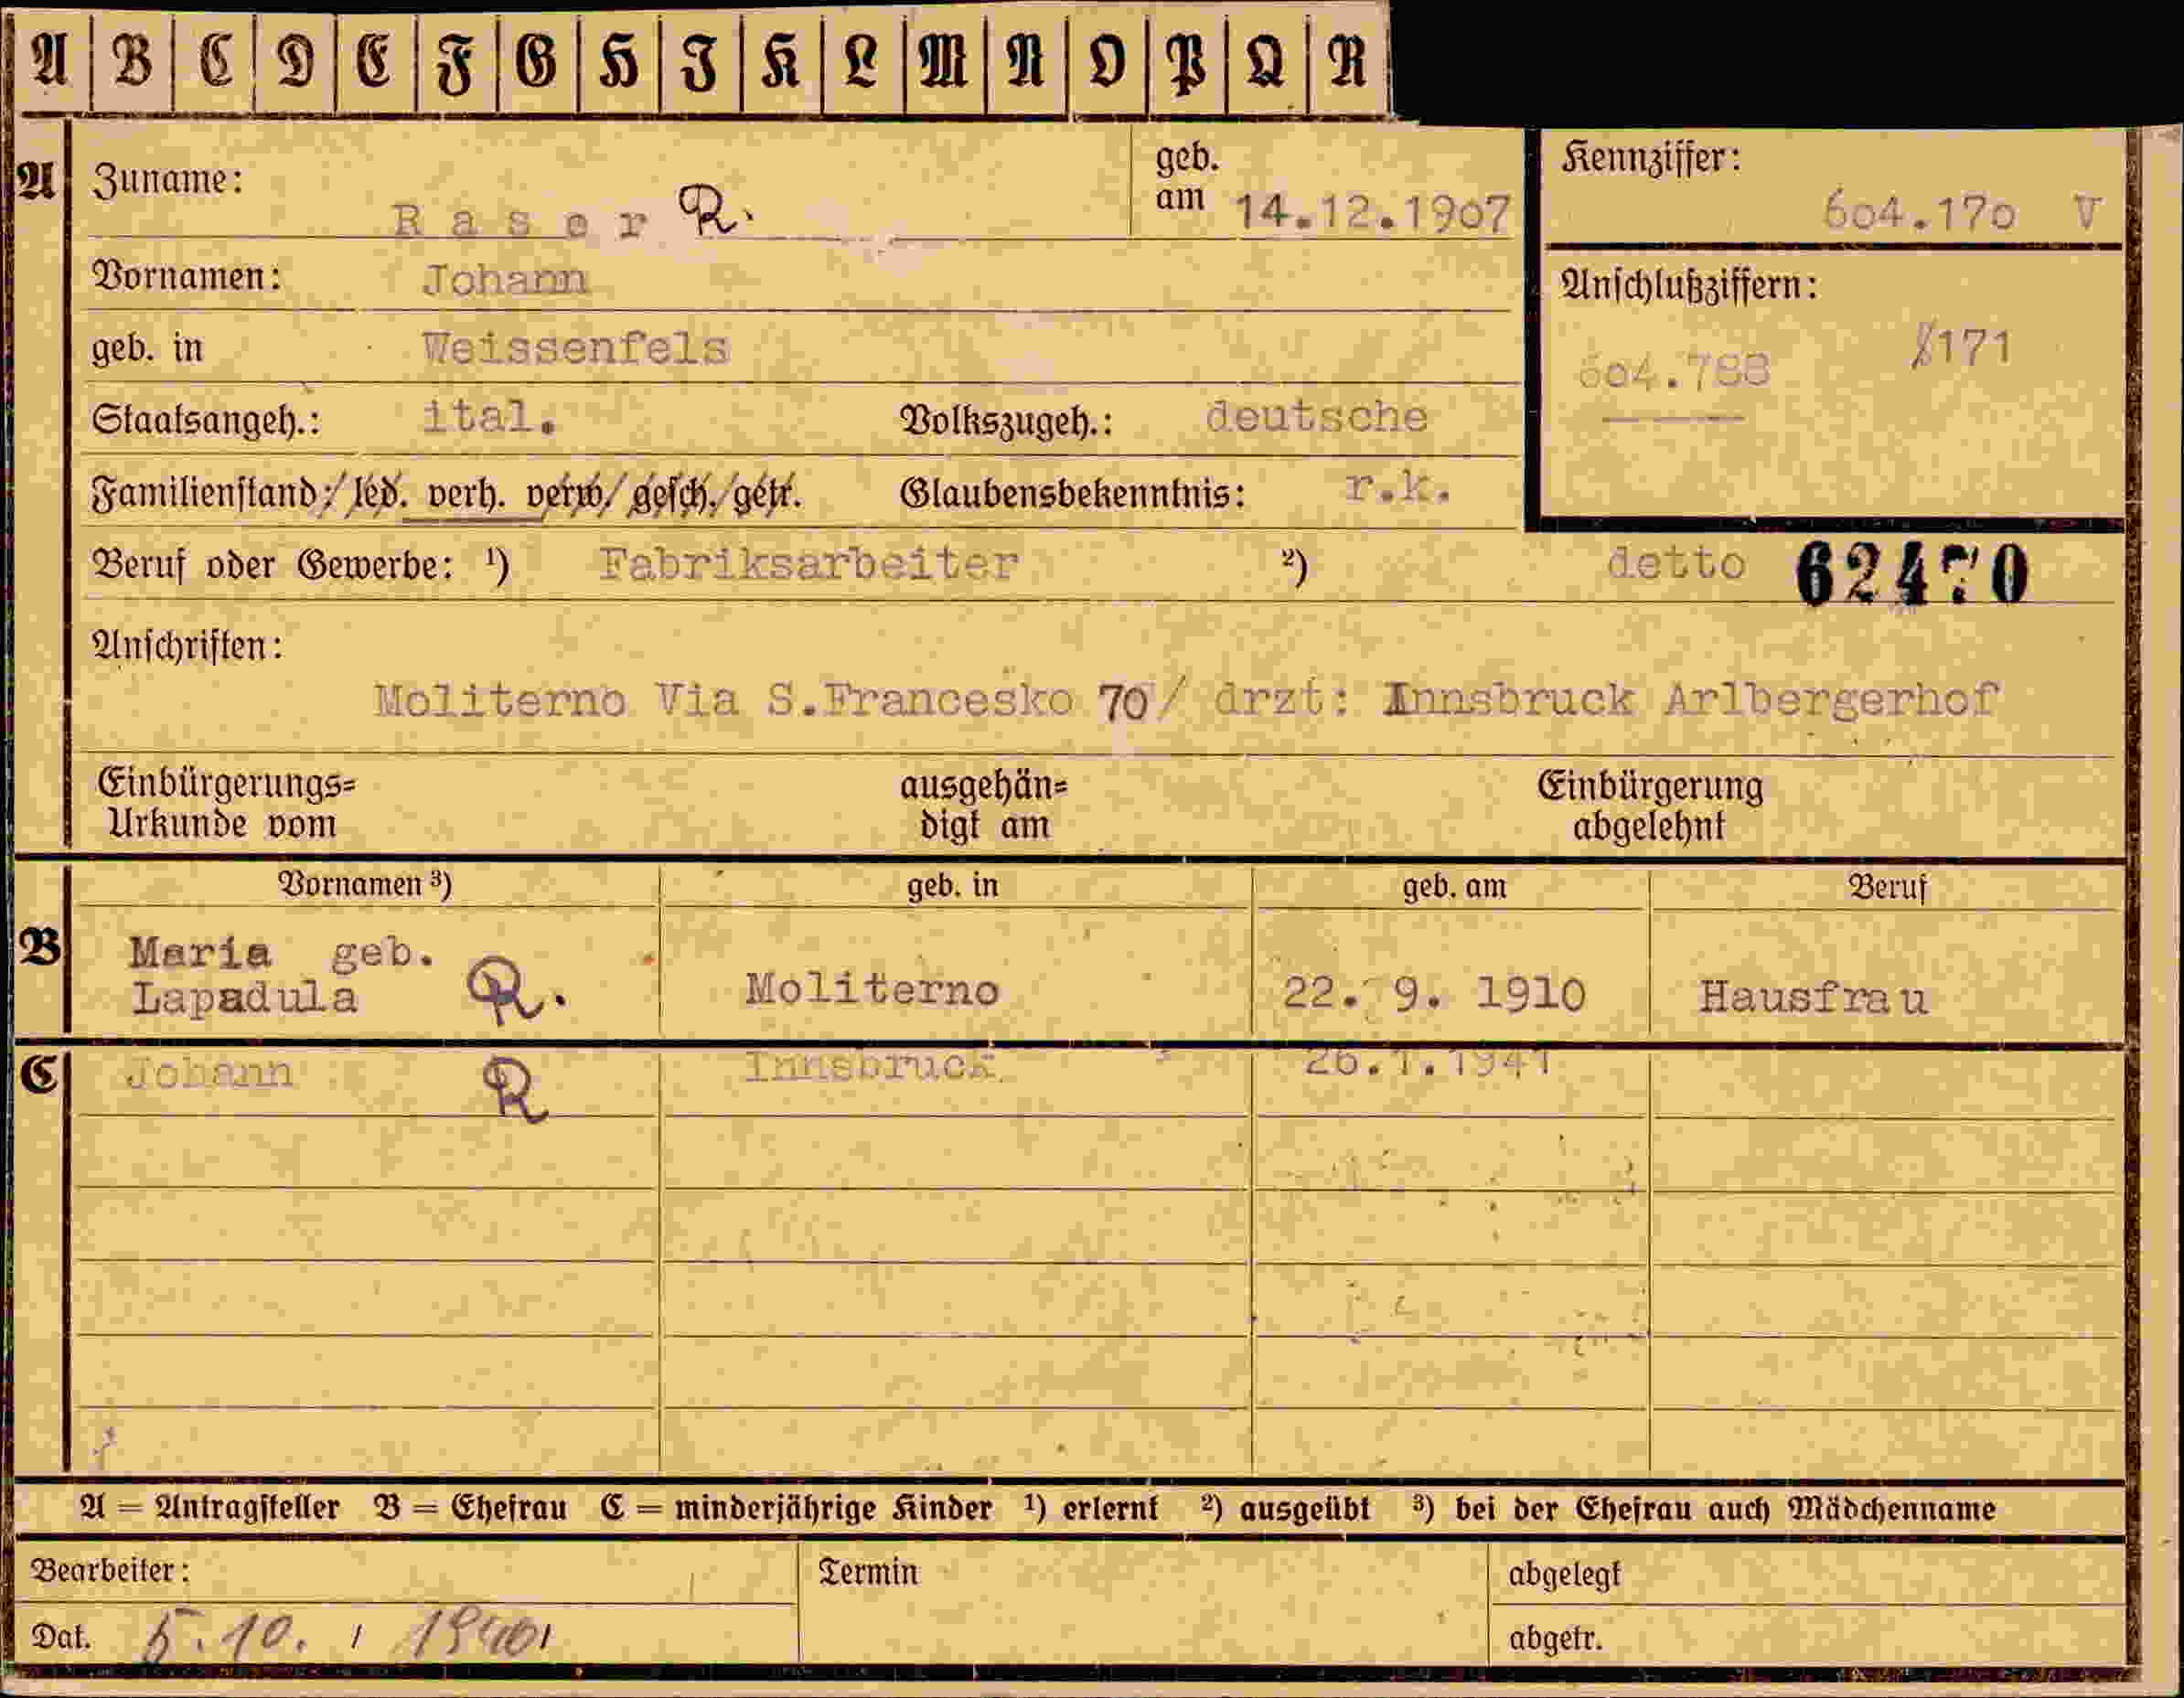 A B C D E F G H I K L M N O P Q R
A Zuname: Raser R. geb. am 14.12.1907 Kennziffer: 604.170 V
Vornamen: Johann Anschlußziffern:
geb. in Weissenfels 604.788 171
Staatsangeh.: ital. Volkszugeh.: deutsche
Familienstand: led. verh. verw. gesch. getr. Glaubensbekenntnis: r.k.
Beruf oder Gewerbe: ¹) Fabriksarbeiter ²) detto 62470
Anschriften:
Moliterno Via S.Francesko 70/ drzt: Innsbruck Arlbergerhof
Einbürgerungs= ausgehän= Einbürgerung
Urkunde vom digt am abgelehnt
Vornamen ³) geb. in geb. am Beruf
B Maria geb.
Lapadula R. Moliterno 22. 9. 1910 Hausfrau
C Johann R Innsbruck 26.1.1941
A = Antragsteller B = Ehefrau C = minderjährige Kinder ¹) erlernt ²) ausgeübt ³) bei der Ehefrau auch Mädchenname
Bearbeiter: Termin abgelegt
Dat. 5.10. / abgetr.